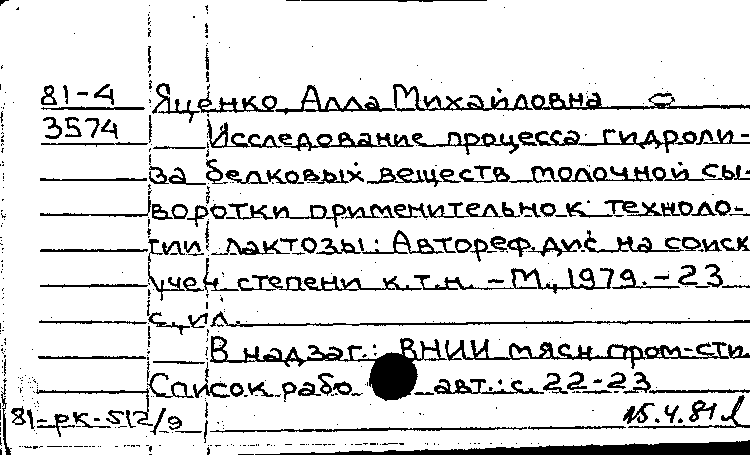 81-4 Яценко, Алла Михайловна
3574 Исследование процесса гидроли-
за белковых веществ молочной сы-
воротки применительно к техноло-
гии лактозы: Автореф. дис. на соиск
учен степени к.т.н. – М., 1979. – 23
с., ил.
В надзаг.: ВНИИ мясн. пром-сти.
Список рабо авт.: с. 22-23
81-рк-512/э 15.4.81